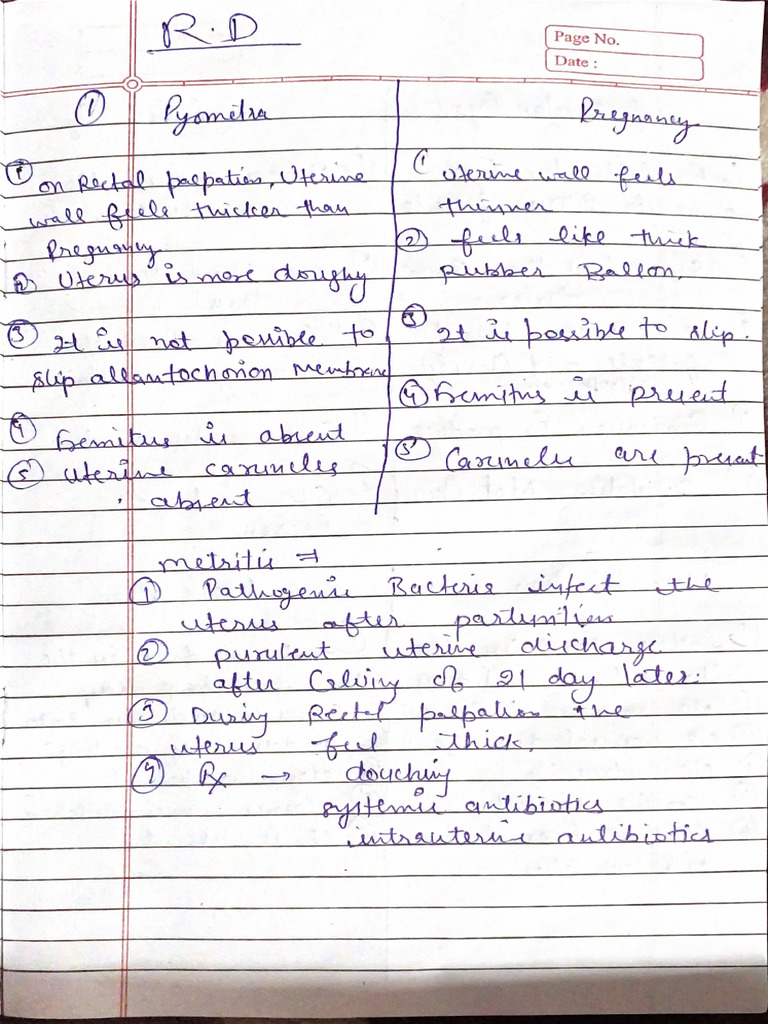 R.D
Page No.
Date :
① Pyometra
① on Rectal palpation, Uterine
wall feels thicker than
Pregnancy
② Uterus is more doughy
③ It is not possible to
slip allantochorion membrane
④ Fremitus is absent
⑤ Uterine caruncles
absent
Pregnancy
① Uterine wall feels
thinner
② feels like thick
Rubber Ballon.
③ It is possible to slip.
④ Fremitus is present
⑤ Caruncles are present
Metritis ⇒
① Pathogenic Bacteria infect the
uterus after parturition
② purulent uterine discharge
after Calving of 21 day later.
③ During Rectal palpation the
uterus feel thick.
④ Rx → douching
systemic antibiotics
intrauterine antibiotics